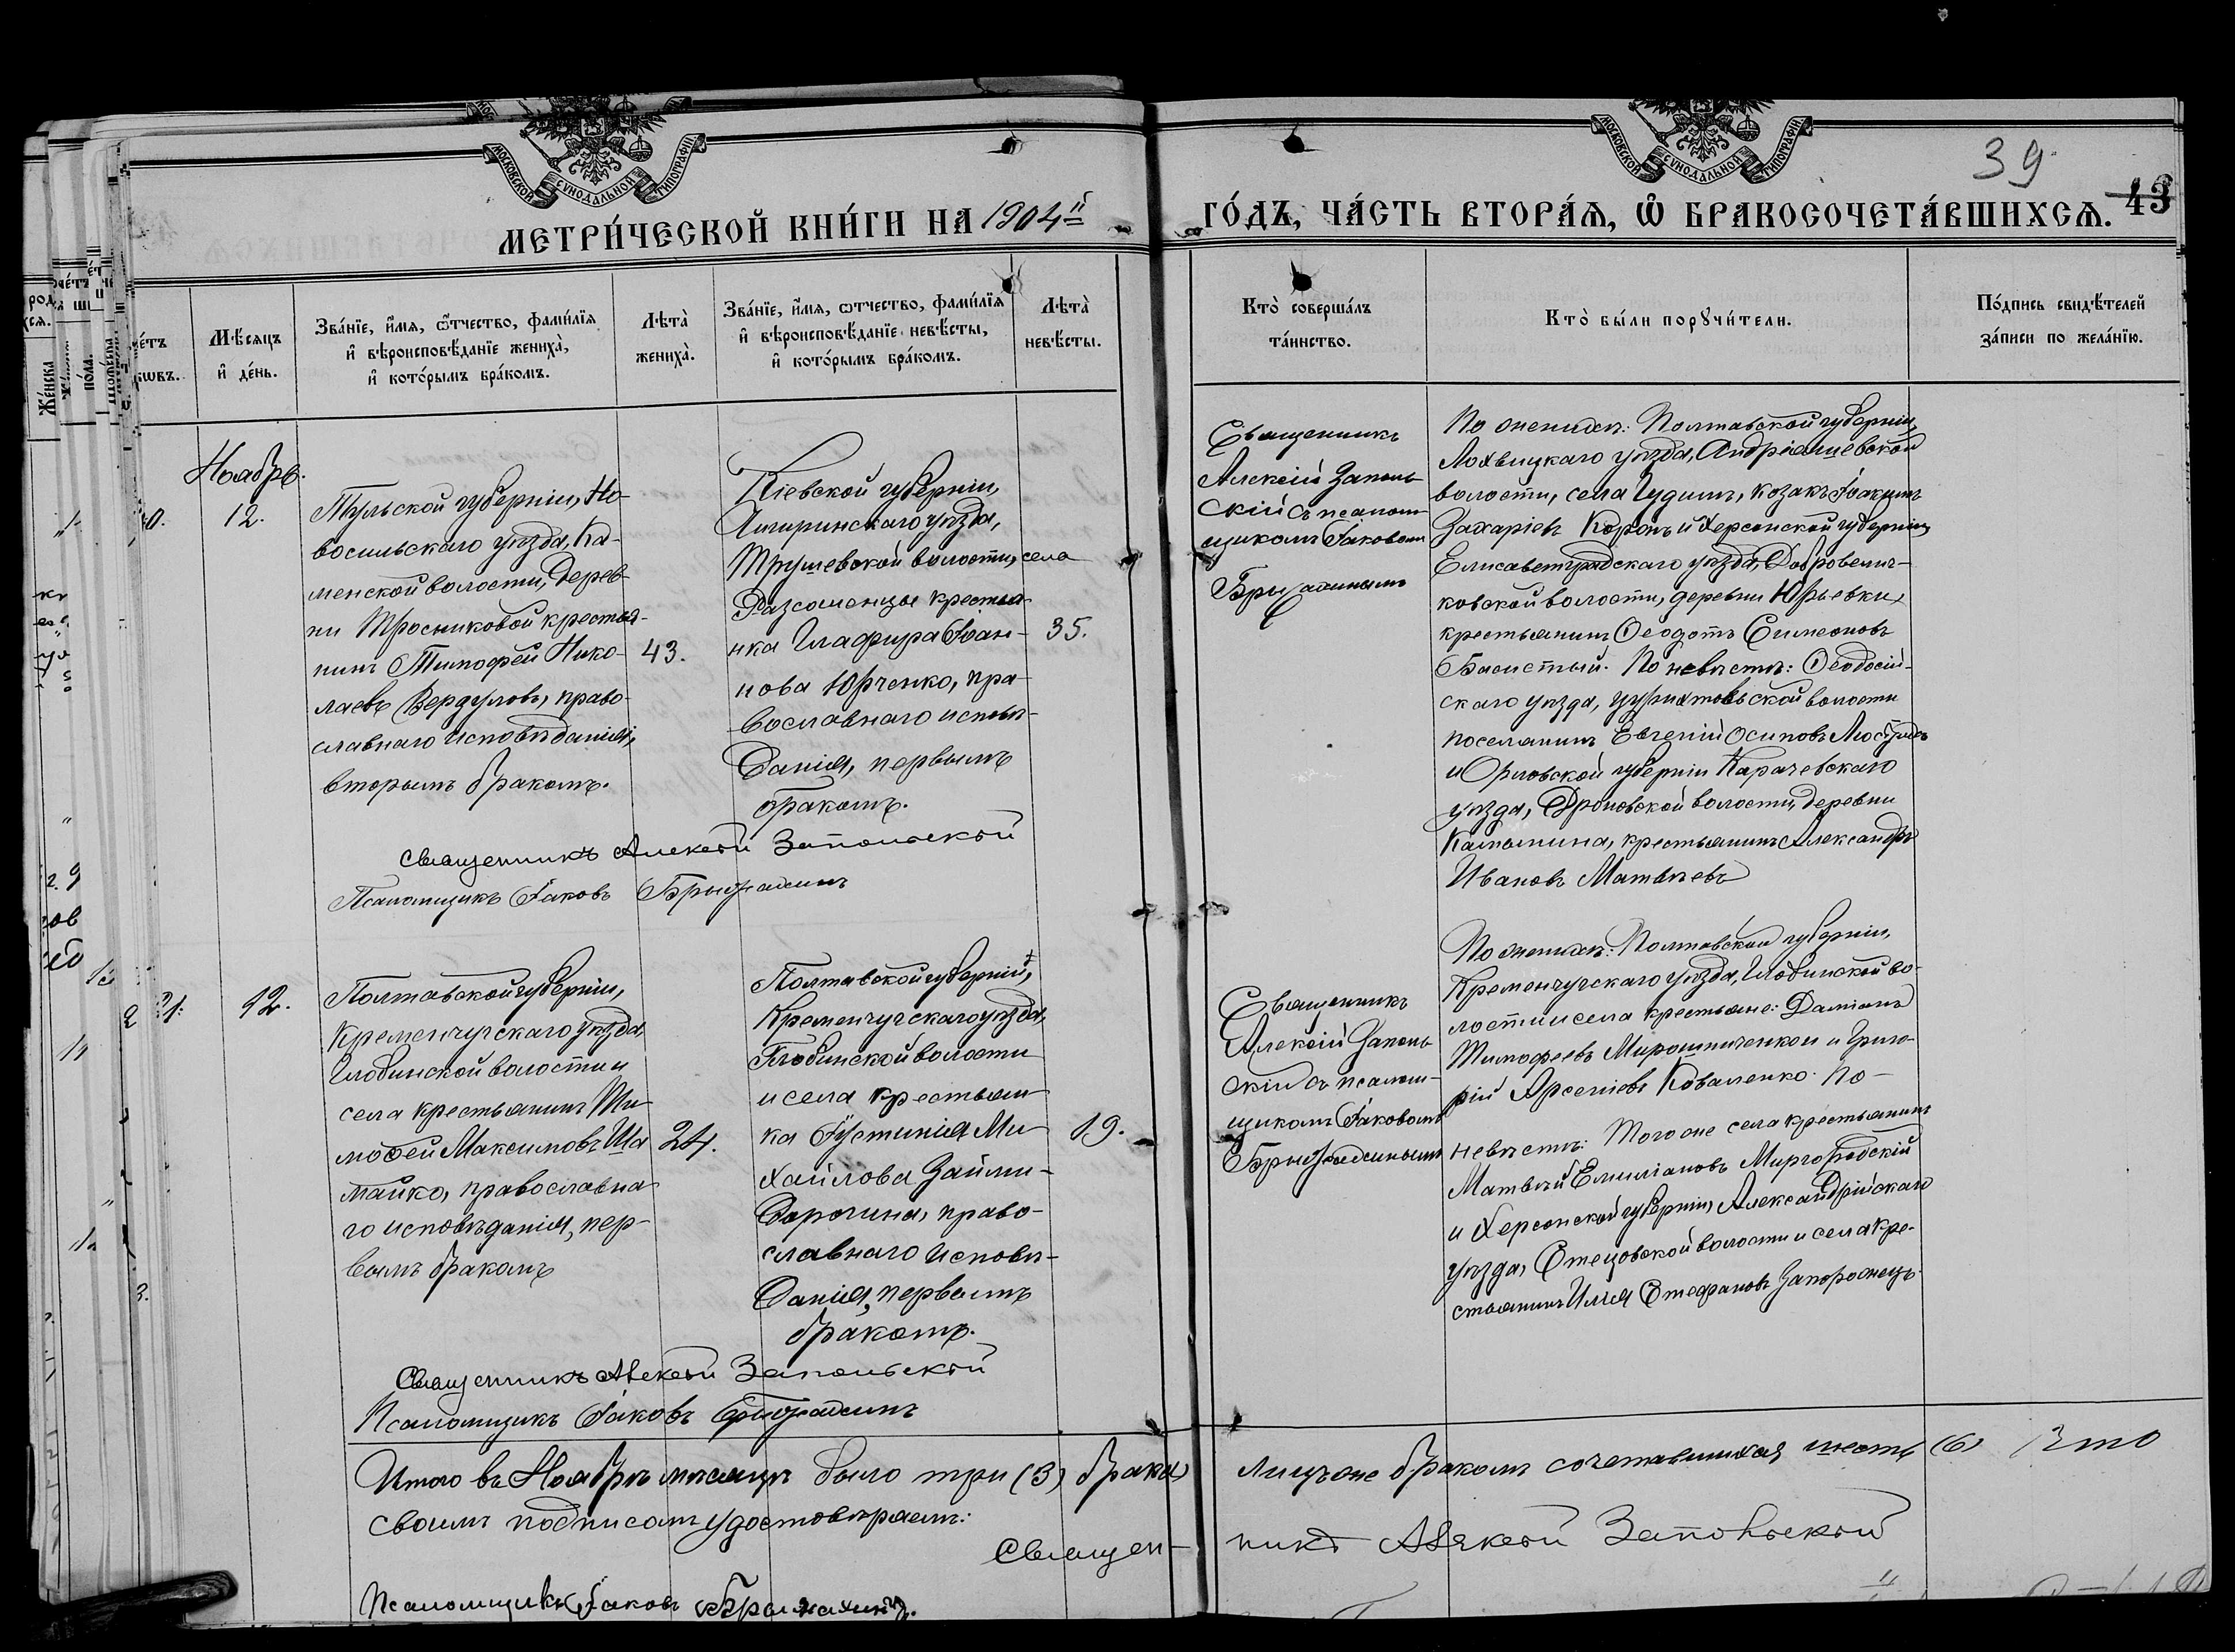 39
43
МОСКОВСКОЙ СУНОДАЛЬНОЙ ТИПОГРАФІИ
МОСКОВСКОЙ СУНОДАЛЬНОЙ ТИПОГРАФІИ
МЕТРИ́ЧЕСКОЙ КНИ́ГИ НА 1904й
ГО́ДЪ, ЧА́СТЬ ВТОРА́Я, Ѡ БРАКОСОЧЕТА́ВШИХСЯ.
Мѣ́сяцъ
и҆ де́нь.
Зва́нїе, и҆́мя, ѻ҆́тчество, фамѝлїя
и҆ вѣроисповѣ́данїе жениха̀,
и҆ кото́рымъ бра́комъ.
Лѣта̀
жениха̀.
Зва́нїе, и҆́мя, ѻ҆́тчество, фамѝлїя
и҆ вѣроисповѣ́данїе невѣ́сты,
и҆ кото́рымъ бра́комъ.
Лѣта̀
невѣ́сты.
Кто̀ соверша́лъ
та́инство.
Кто̀ бы́ли порꙋчи́тели.
По́дпись свидѣ́телей
за́писи по жела́нїю.
Ноябрь.
12.
Тульской губерніи, Но-
восильскаго уѣзда, Ка-
менской волости, дерев-
ни Тросниковой крестья-
нинъ Тимофей Нико-
лаевъ Вердуловъ, право-
славнаго исповѣданія,
вторымъ бракомъ.
43.
Кіевской губерніи,
Чигиринскаго уѣзда,
Трушевской волости, села
Разсошенцы крестья-
нка Глафира Іоан-
нова Юрченко, пра-
вославнаго исповѣ-
данія, первымъ
бракомъ.
35.
Священникъ
Алексій Заполь
скій съ псалом-
щикомъ Іаковомъ
По женихѣ: Полтавской губерніи,
Лохвицкаго уѣзда, Андріяшевской
волости, села Гудимъ, козакъ Іоакимъ
Захаріевъ Коронь и Херсонской губерніи,
Елисаветградскаго уѣзда, Добровелич-
ковской волости, деревни Юрьевки,
крестьянинъ Ѳеодотъ Симеоновъ
Басистый. По невѣстѣ: Ѳеодосій-
скаго уѣзда, волости
поселянинъ Евгеній Осиповъ
и Орловской губерніи Карачевскаго
уѣзда, Дроновской волости, деревни
крестьянинъ Александръ
Ивановъ Матвѣевъ
Священникъ Алексій Запольскій
Псаломщикъ Іаковъ
12.
Полтавской губерніи,
Кременчугскаго уѣзда,
Глобинской волости и
села крестьянинъ Ти
моѳей Максимовъ Ша
майко, православна
го исповѣданія, пер-
вымъ бракомъ
24.
Полтавской губерніи,
Кременчугскаго уѣзда,
Глобинской волости
и села крестьян
ка Іустинія Ми
хайлова Займи-
Дорогина, право-
славнаго исповѣ-
данія, первымъ
бракомъ.
19.
Священникъ
Алексій Заполь
скій съ псалом-
щикомъ Іаковомъ
По женихѣ: Полтавской губерніи,
Кременчугскаго уѣзда, Глобинской во-
лости и села крестьяне: Даміанъ
Тимофеевъ Мирошниченко и Григо-
рій Арсеніевъ Коваленко. По-
невѣстѣ: Того же села крестьянинъ
Матвѣй Емиліановъ Миргородскій
и Херсонской губерніи, Александрійскаго
уѣзда, Стецовской волости и села кре-
стьянинъ Илія Стефановъ Запорожецъ.
Священникъ Алексій Запольскій
Псаломщикъ Іаковъ
Итого въ Ноябрѣ мѣсяцѣ было три (3) брака,
лицъ же бракомъ сочетавшихся шесть (6) Что
своимъ подписомъ удостовѣряемъ:
Священ-
никъ Алексій Запольскій
Псаломщикъ Іаковъ